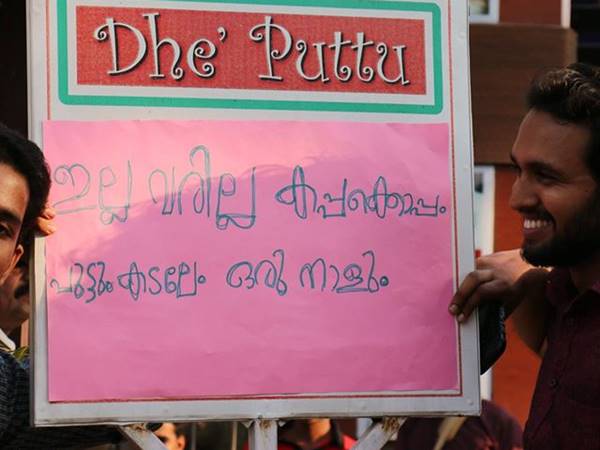 Dhe' Puttu
ഇല്ല വരില്ല കപ്പക്കൊപ്പം
പുട്ടും കടലേം ഒരു നാളും